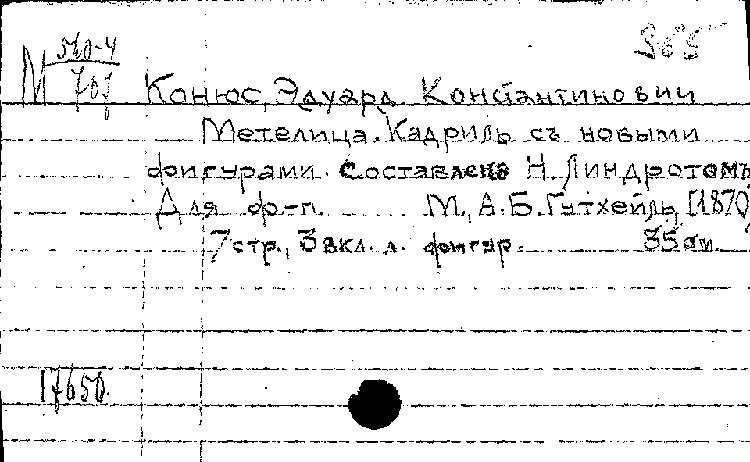 М 510-4
701
365
Конюс, Эдуард Константинович
Метелица. Кадриль съ новыми
фигурами. Составлена Н. Линдротомъ
Для ф-п. М., А.Б. Гутхейль, [1870]
7 стр., 3 вкл. л. фигур. 35 см.
17650